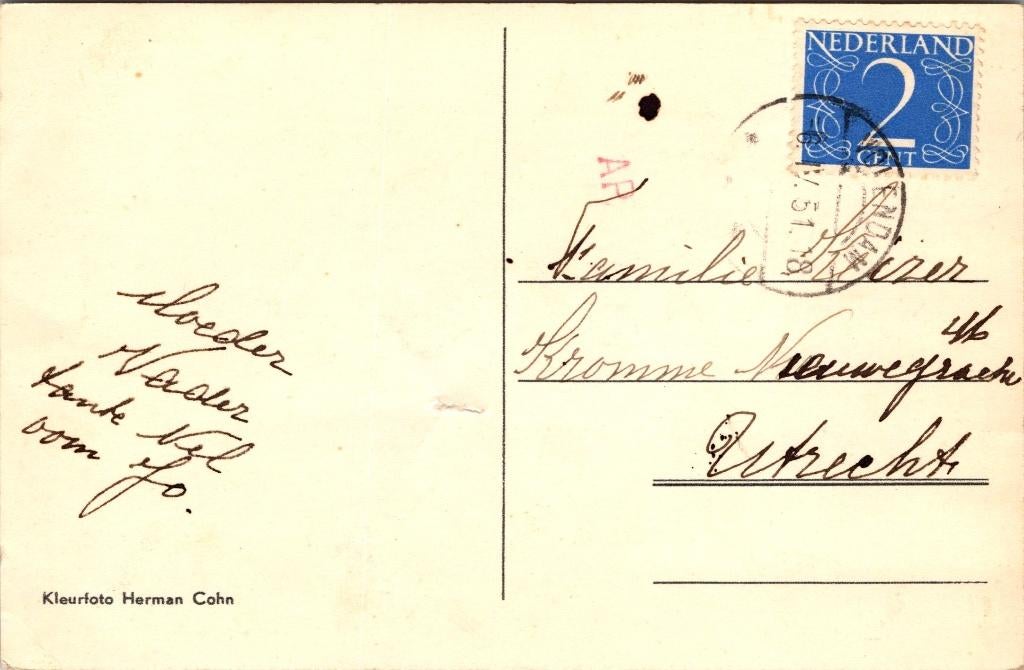 Moeder
Vader
tante Nel
oom Jo.
Kleurfoto Herman Cohn
NEDERLAND
2
CENT
VOLENDAM
6.IV.51.18
AP
Familie Keizer
46
Kromme Nieuwegracht
Utrecht